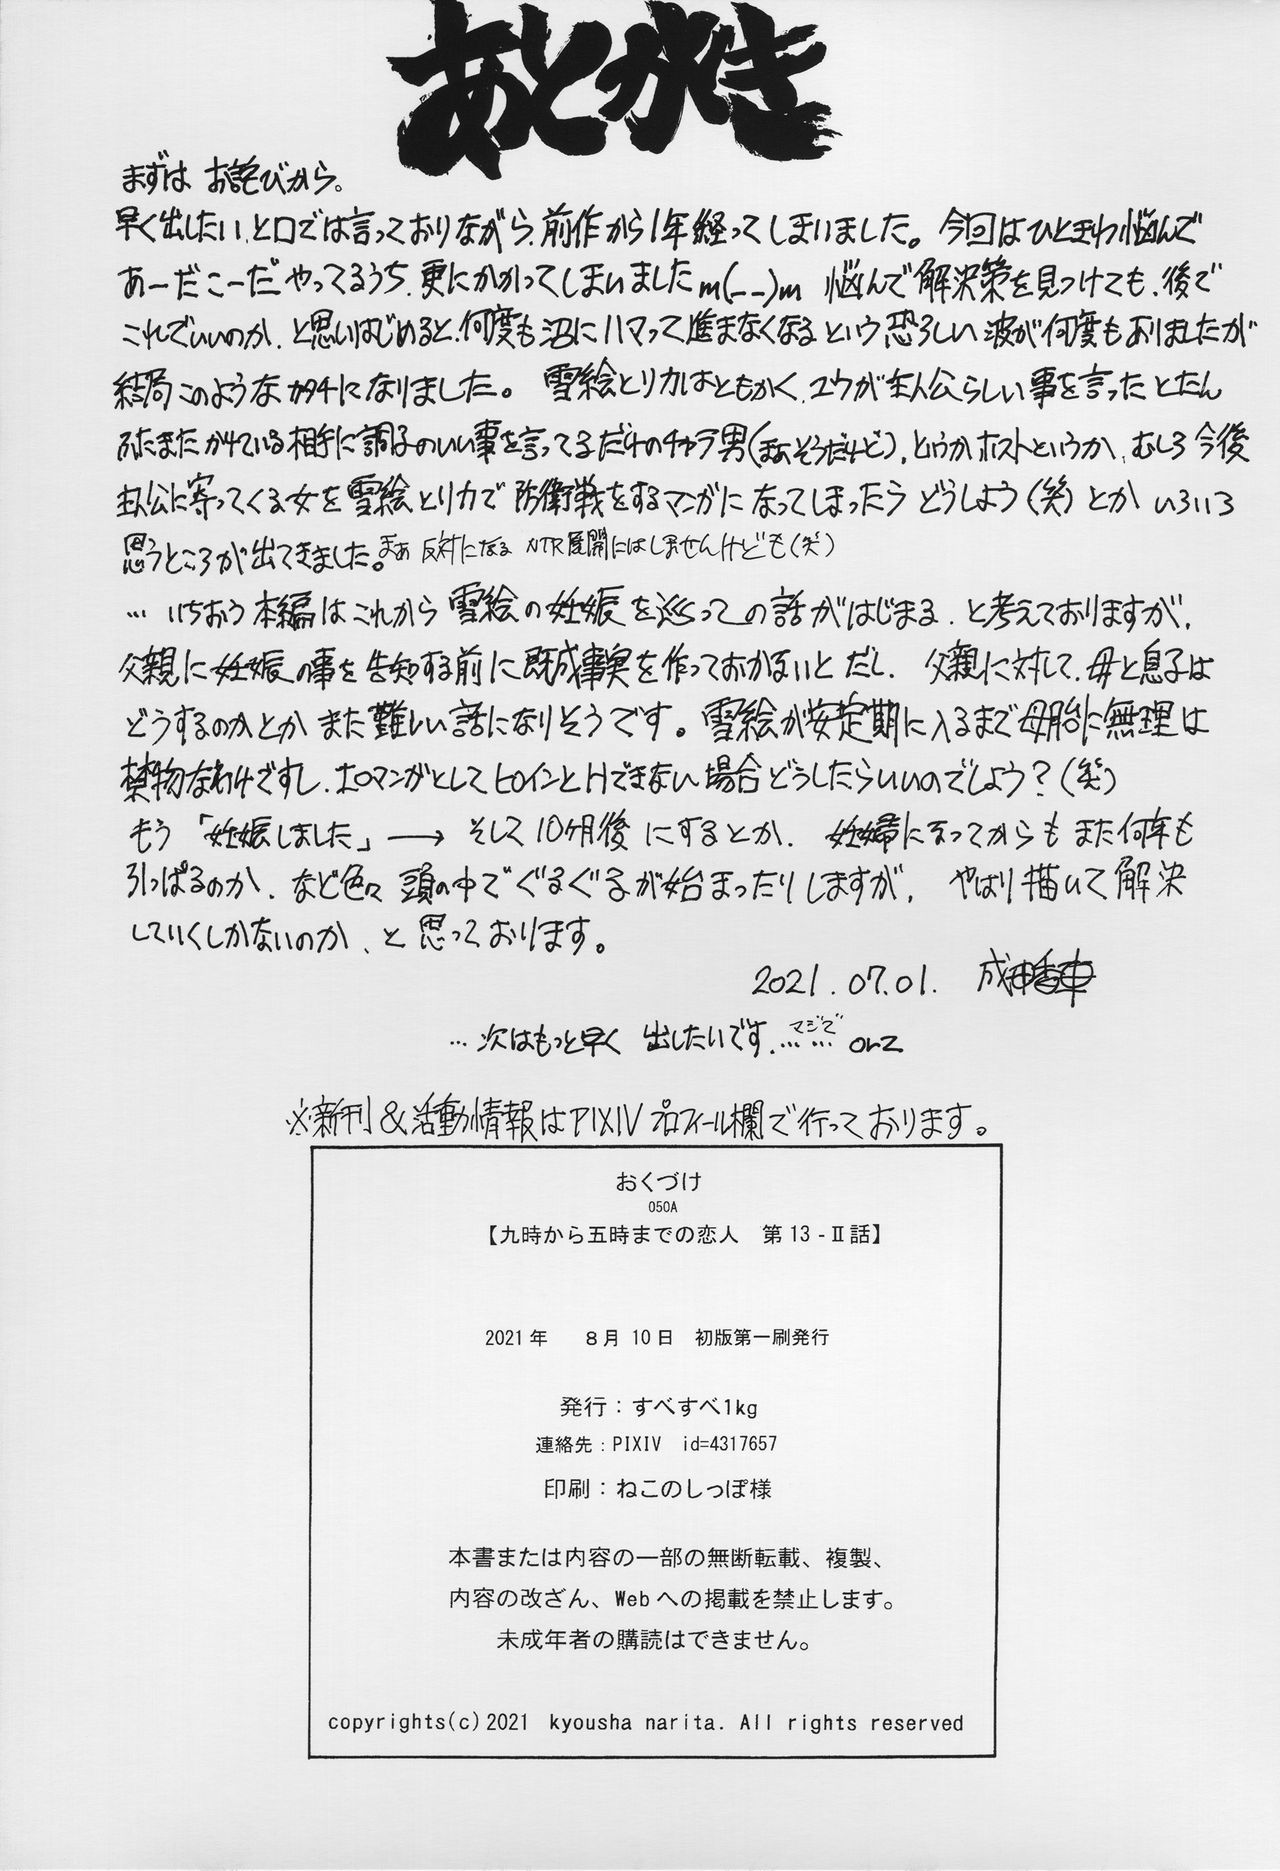 あとがき
まずは お詫びから。
早く出したい、と口では言っておりながら、前作から1年経ってしまいました。今回はひときわ悩んで
あーだこーだ やってるうち、更にかかってしまいましたm(_ _)m 悩んで解決策を見つけても、後で
これでいいのか、と思いはじめると、何度も沼にハマって進まなくなる という恐ろしい波が何度もありましたが
結局このようなカタチになりました。 雪絵とリカはともかく、ユウが主人公らしい事を言ったとたん
ふたまたかけている相手に調子のいい事を言ってるだけのチャラ男(まぁそうだけど)、というかホストというか、むしろ今後
主人公に寄ってくる女を雪絵とリカで防衛戦をするマンガになってしまったらどうしよう(笑)とか いろいろ
思うところが出てきました。まぁ反対になる NTR展開にはしませんけども(笑)
… いちおう本編はこれから雪絵の妊娠を巡っての話がはじまる、と考えておりますが、
父親に妊娠の事を告知する前に既成事実を作っておかないとだし、父親に対して、母と息子は
どうするのかとか また難しい話になりそうです。雪絵が安定期に入るまで母胎に無理は
禁物なわけですし、エロマンガとしてヒロインとHできない場合どうしたらいいのでしょう?(笑)
もう「妊娠しました」→ そして10ヶ月後 にするとか、 妊婦になってからも また何年も
引っぱるのか、など色々 頭の中でぐるぐるが始まったりしますが、 やはり描いて解決
していくしかないのか、と思っております。
2021.07.01. 成田香車
… 次はもっと早く 出したいです、マジで…… orz
※新刊&活動情報はPIXIVプロフィール欄で行っております。
おくづけ
050A
【九時から五時までの恋人　第13-Ⅱ話】
2021年　8月10日　初版第一刷発行
発行：すべすべ1kg
連絡先：PIXIV　id=4317657
印刷：ねこのしっぽ様
本書または内容の一部の無断転載、複製、
内容の改ざん、Webへの掲載を禁止します。
未成年者の購読はできません。
copyrights(c)2021 kyousha narita. All rights reserved